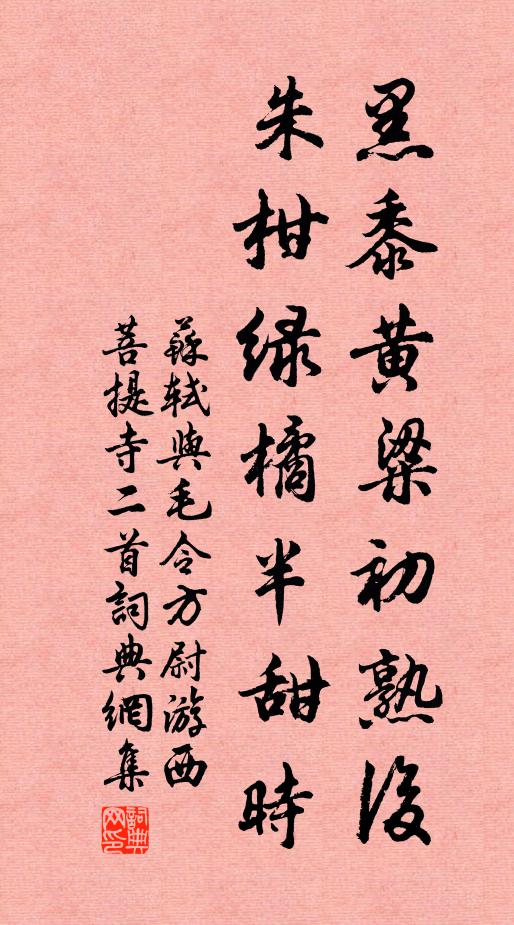 黑黍黄粱初熟後
朱柑绿橘半甜時
蘇軾與毛令方尉游西
菩提寺二首詞典網集
詞典
网印